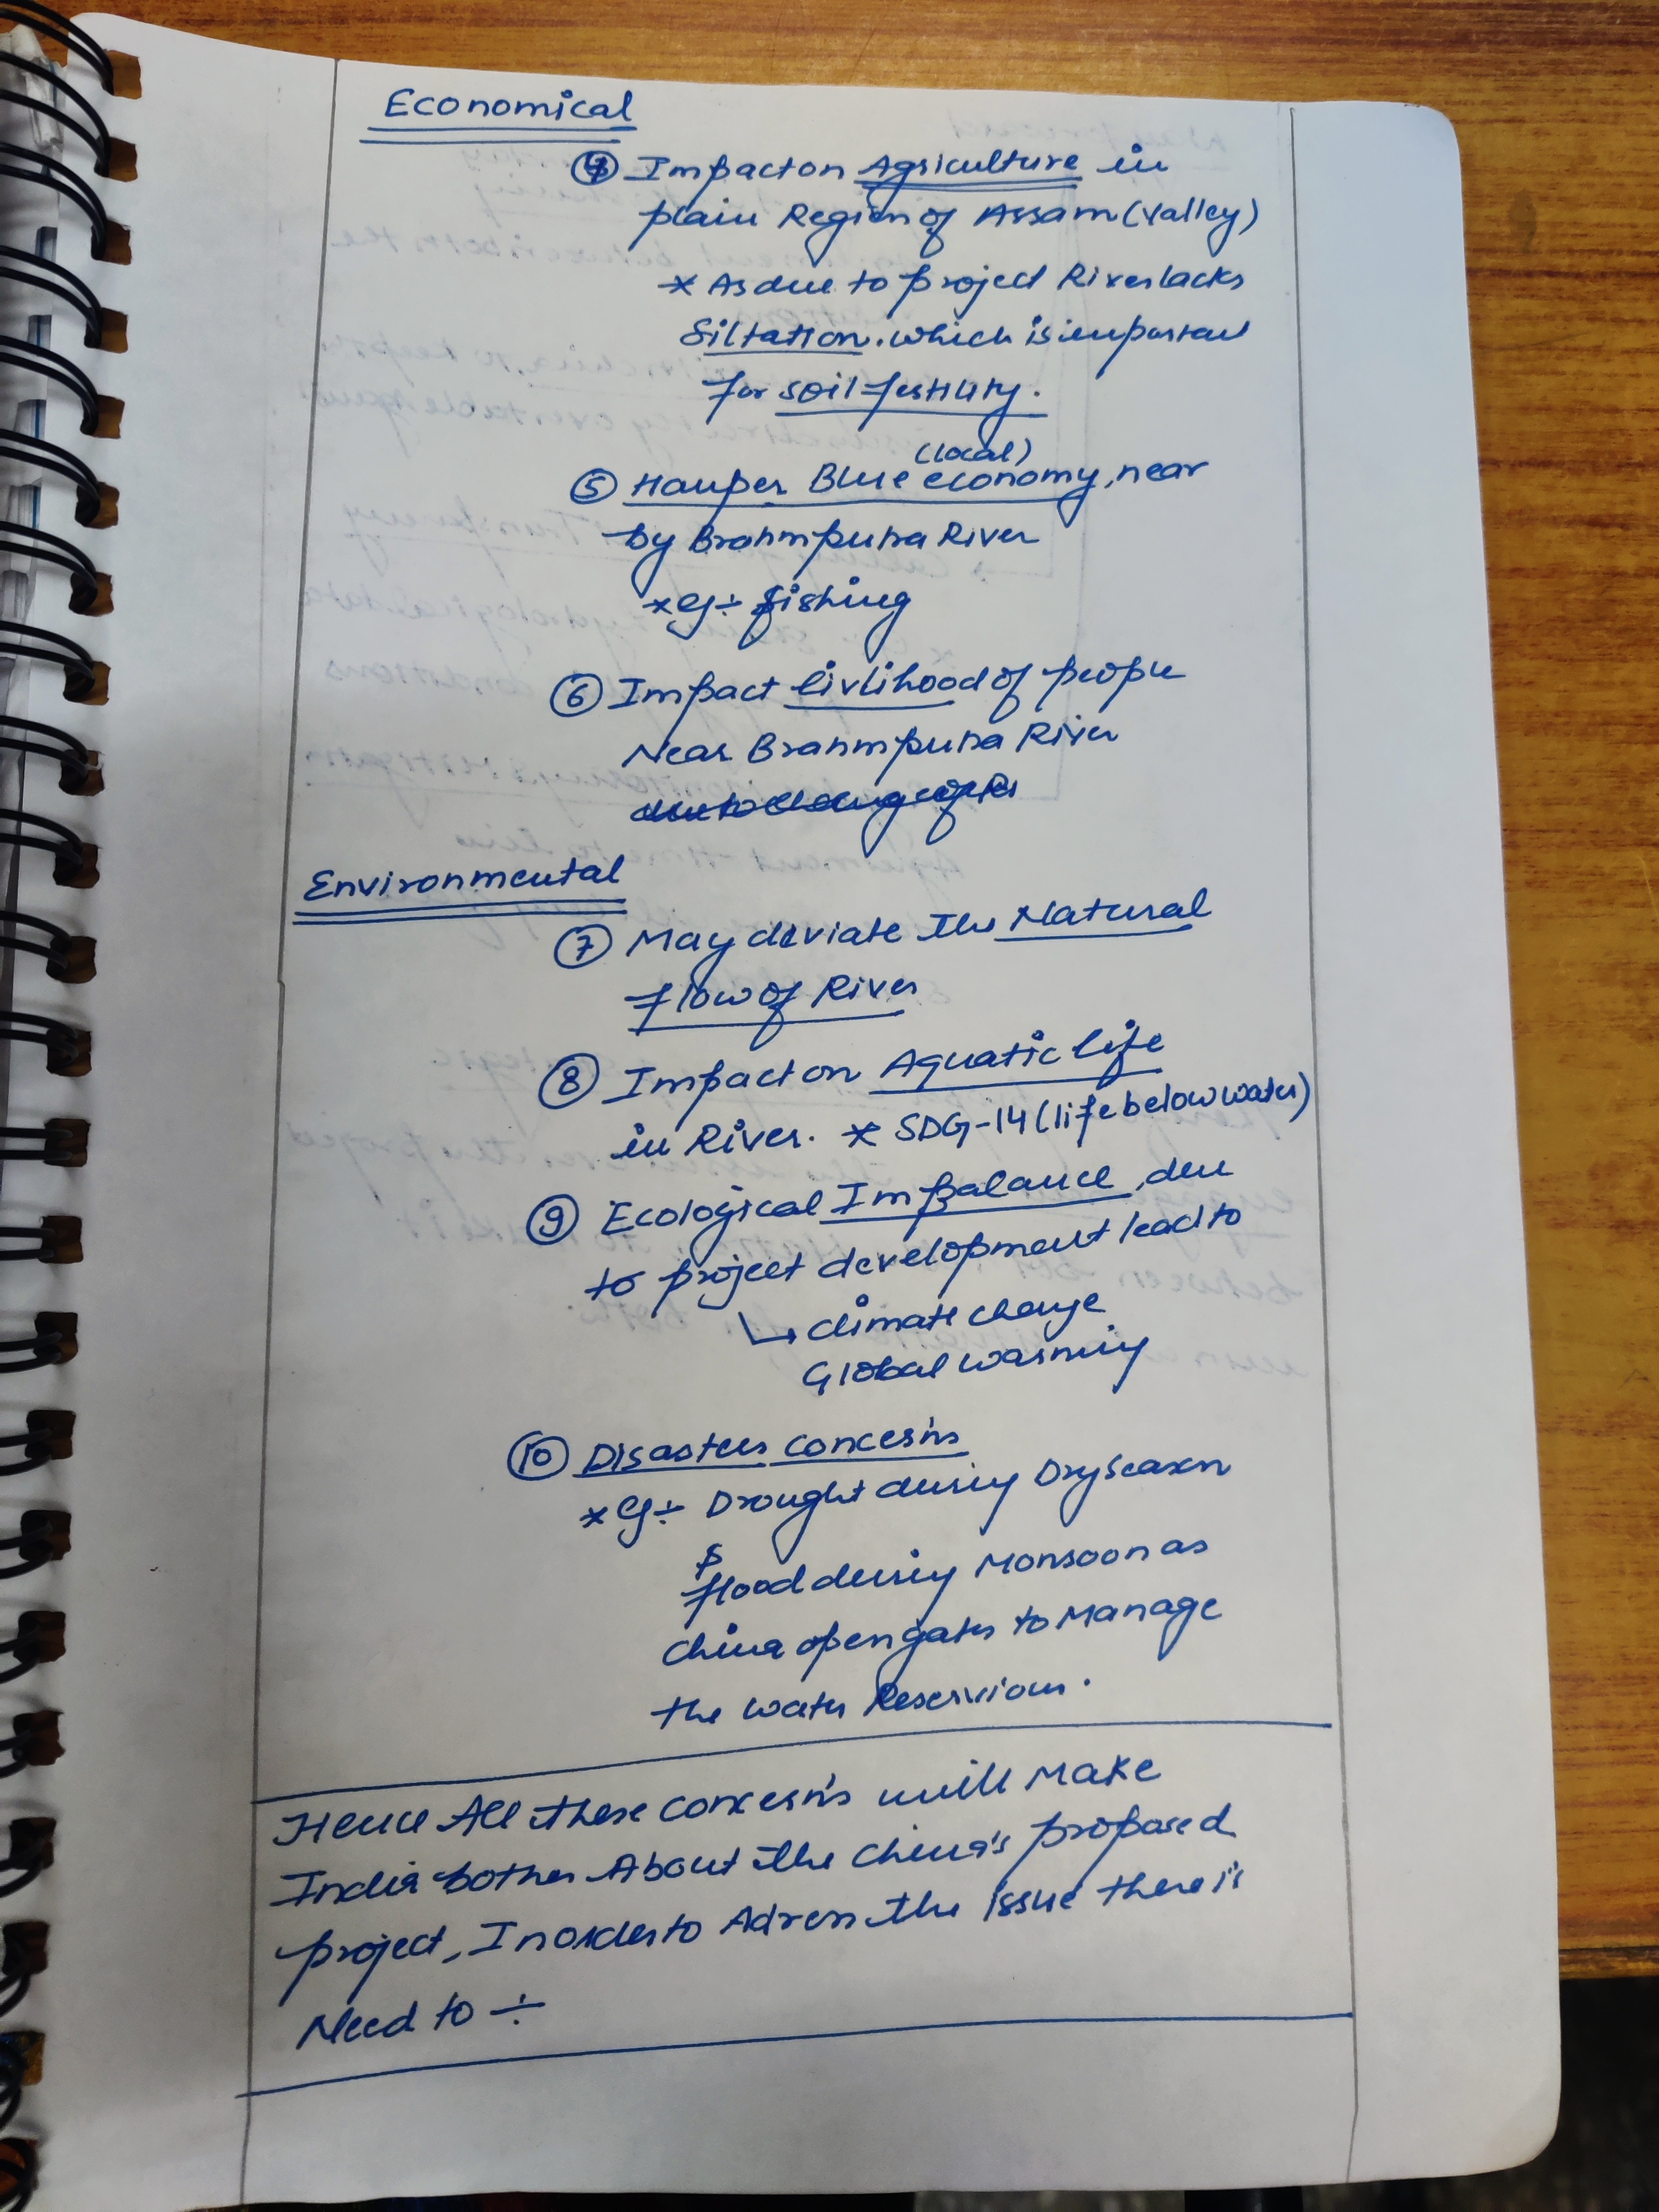 Economical
④ Impact on Agriculture in
plain Region of Assam (Valley)
* As due to project River lacks
Siltation. which is important
for soil fertility.
(local)
⑤ Hamper Blue economy, near
by Brahmputra River
* eg ÷ fishing
⑥ Impact livlihood of people
Near Brahmputra River
Environmental
⑦ May deviate the Natural
flow of River
⑧ Impact on Aquatic life
in River. * SDG-14 (life below water)
⑨ Ecological Imbalance, due
to project development lead to
↳ climate change
Global warming
⑩ Disasters concern's
* eg ÷ Drought during Dry Season
&
flood during Monsoon as
China open gates to Manage
the water Reserviour.
Hence All these concern's will Make
India bother About the China's proposed
project, In order to Adress the issue there is
Need to ÷